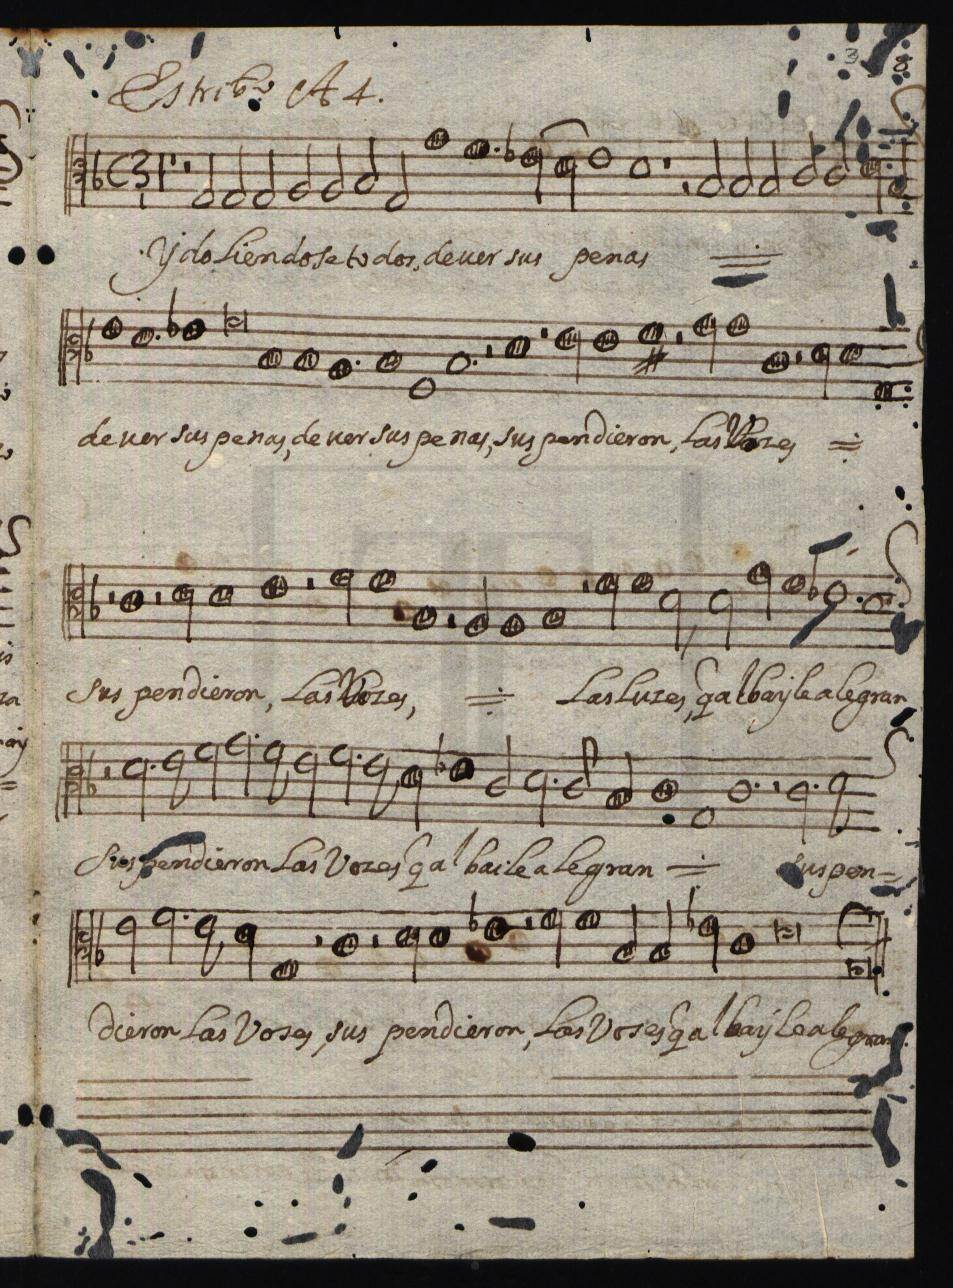 Estribo A 4.
3 8
Y doliendose todos, de ver sus penas
de ver sus penas, de ver sus penas, suspendieron, las Vozes
Sus pendieron, Las Vozes, Las luzes, q al bayle alegran
Suspendieron Las Vozes q al baile alegran suspen=
dieron Las Vozes, sus pendieron, Las Vozes q al bayle alegran.